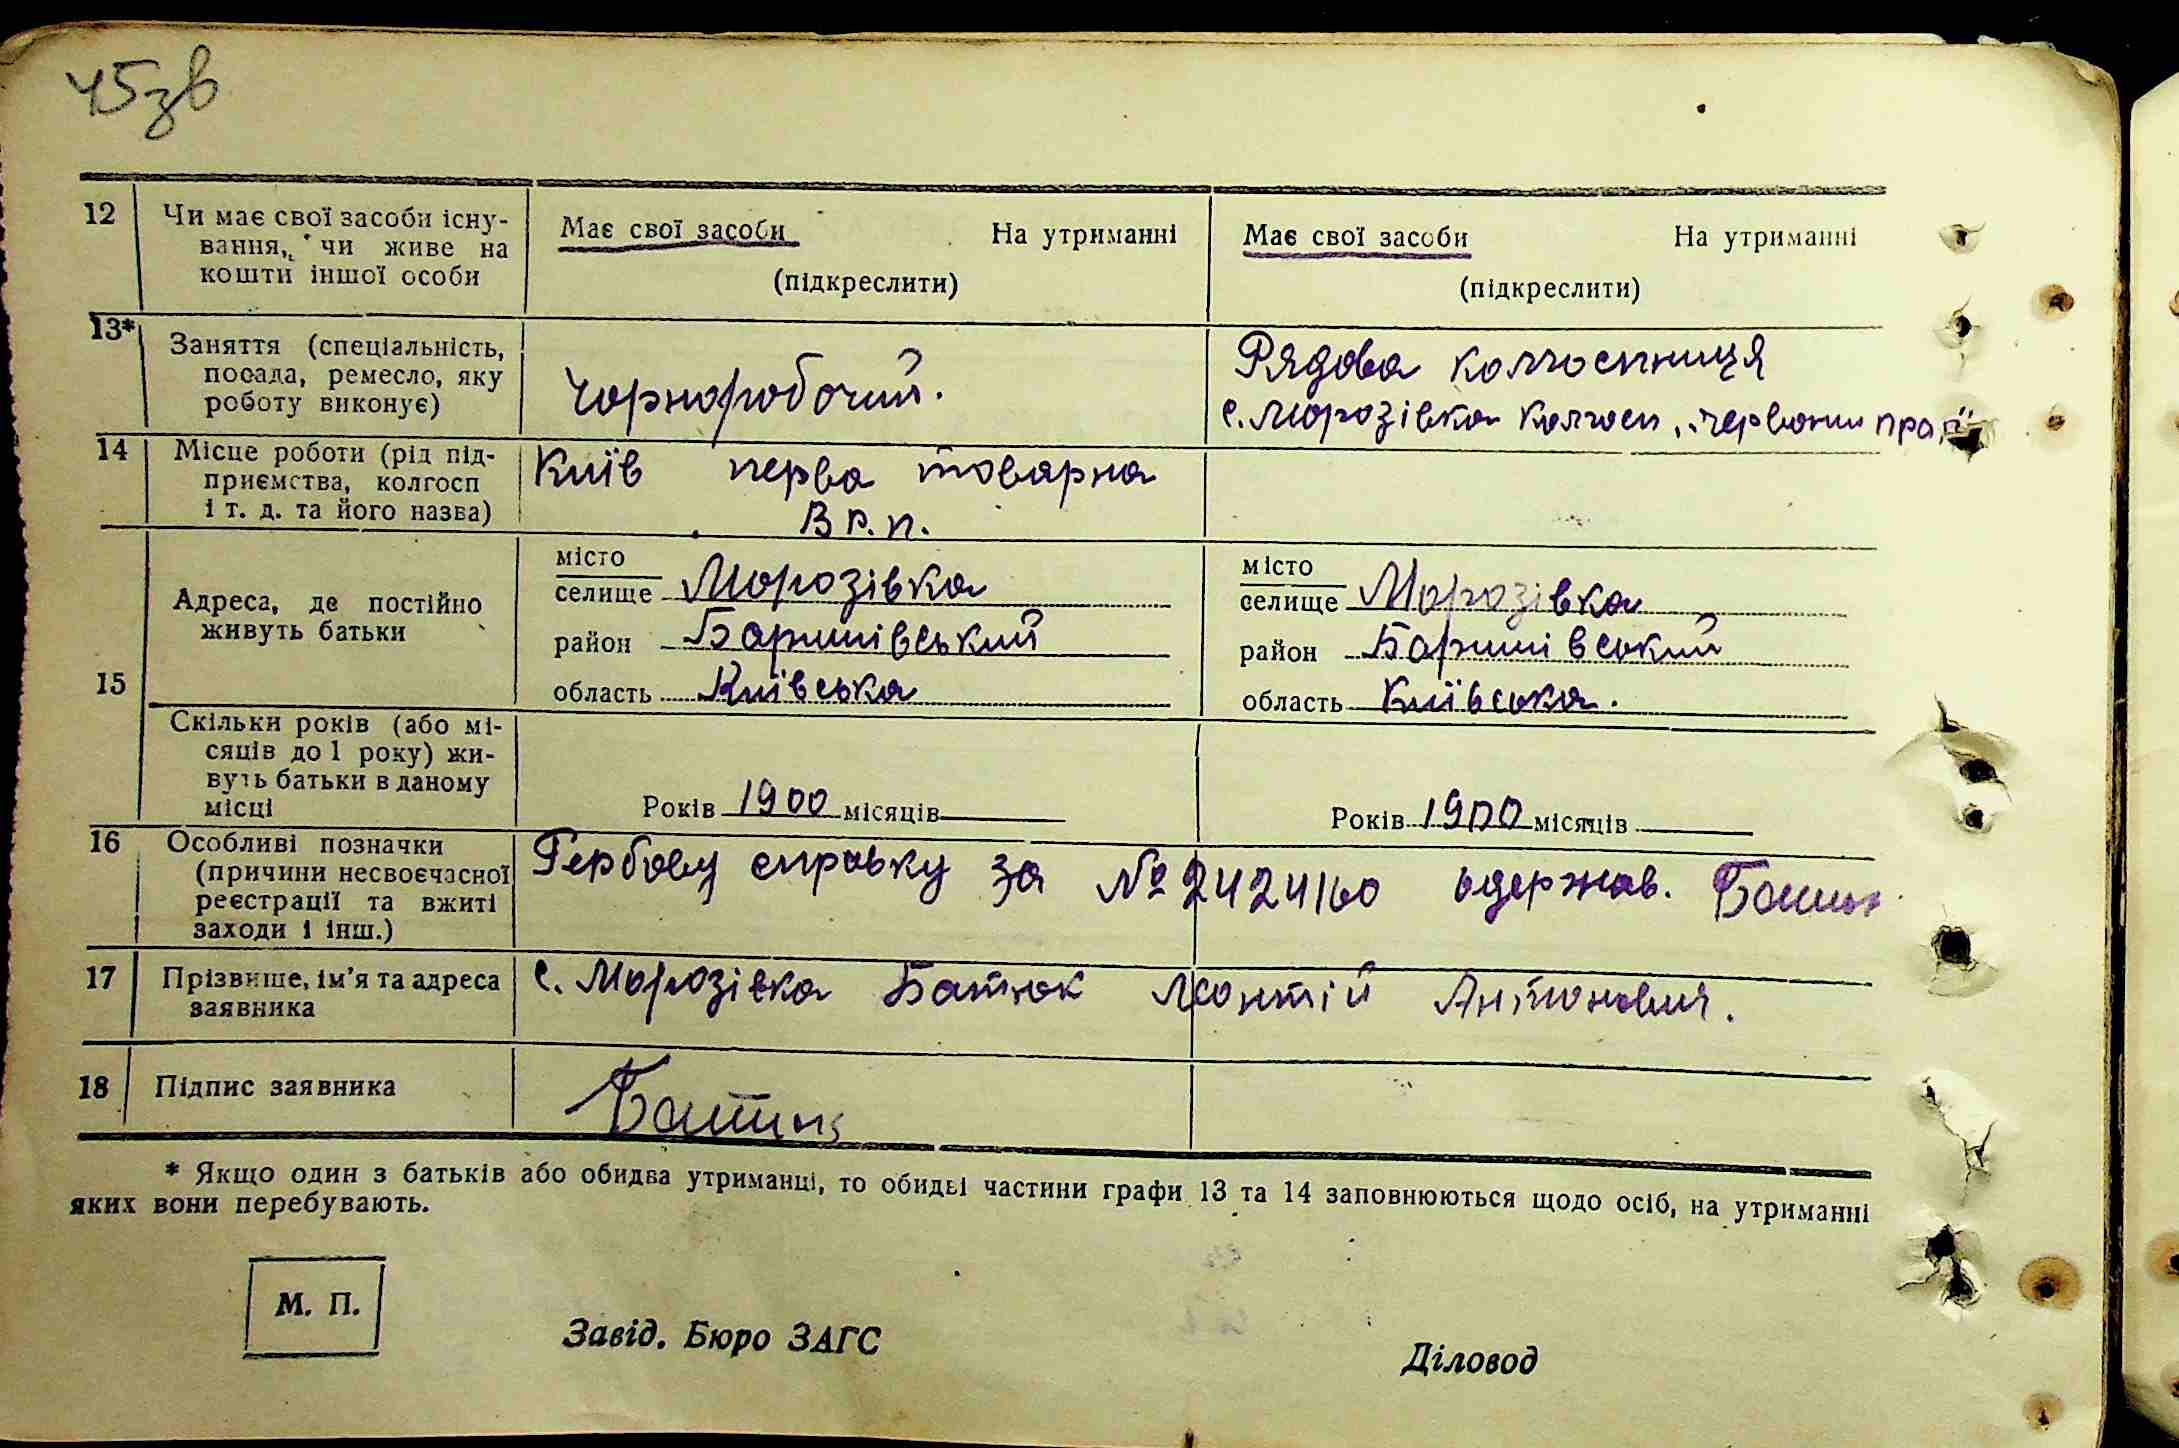 45зв
12 Чи має свої засоби існу-
вання, чи живе на
кошти іншої особи
Має свої засоби На утриманні
(підкреслити)
Має свої засоби На утриманні
(підкреслити)
13* Заняття (спеціальність,
посада, ремесло, яку
роботу виконує)
Чорноробочий.
Рядова колгоспниця
с. Морозівка колгосп „Червоний прап"
14 Місце роботи (рід під-
приємства, колгосп
і т. д. та його назва)
Київ перва товарна
В р. п.
15 Адреса, де постійно
живуть батьки
місто
селище Морозівка
район Баришівський
область Київська
місто
селище Морозівка
район Баришівський
область Київська.
Скільки років (або мі-
сяців до 1 року) жи-
вуть батьки в даному
місці
Років 1900 місяців
Років 1900 місяців
16 Особливі позначки
(причини несвоєчасної
реєстрації та вжиті
заходи і інш.)
Гербову справку за № 2424160 одержав.
17 Прізвище, ім'я та адреса
заявника
с. Морозівка Батюк Леонтій Антонович.
18 Підпис заявника
Батюк
* Якщо один з батьків або обидва утриманці, то обидві частини графи 13 та 14 заповнюються щодо осіб, на утриманні
яких вони перебувають.
М. П.
Завід. Бюро ЗАГС
Діловод